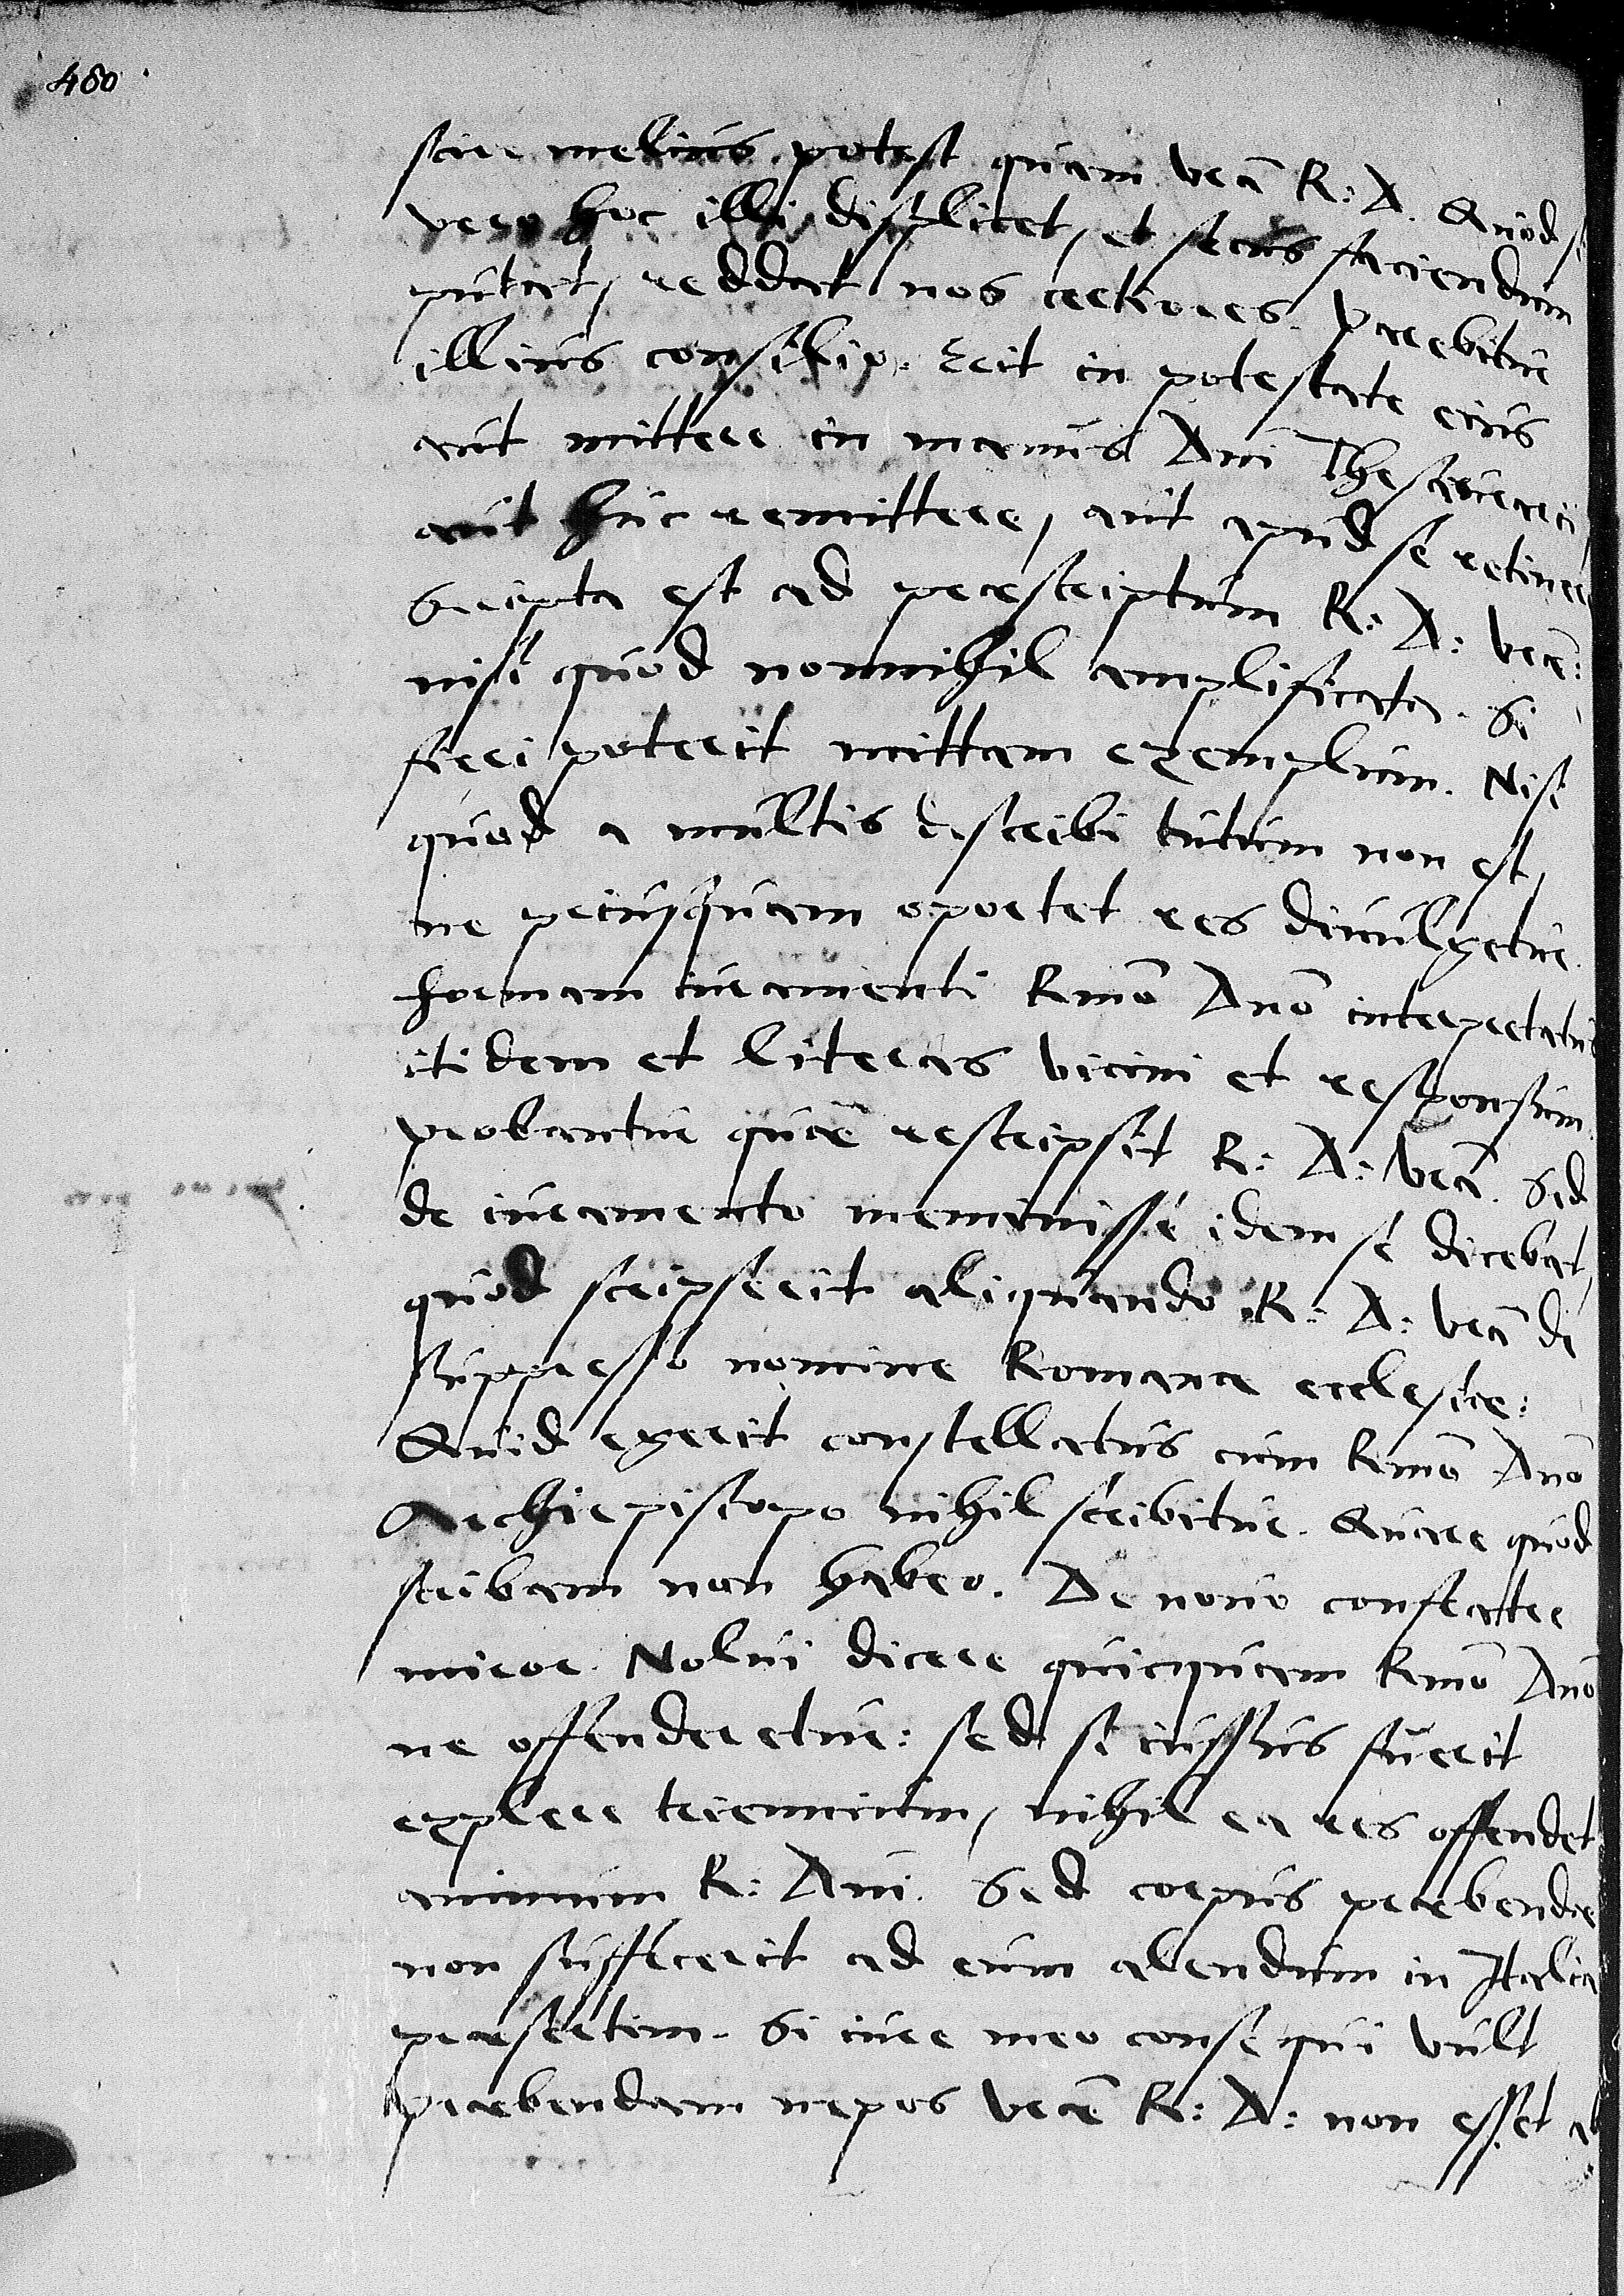 480
scire melius potest quam vra R: D. Quod si
vero hoc illi displicet, et secus faciendum
putat, reddat nos certiores. Parebitur
illius consilio. Erit in potestate eius
aut mittere in manus Dni Thesaurarii,
aut huc remittere, aut apud se retinere
Scripta est ad praescriptum R: D: vrae:
nisi quod nonnihil amplificata. Si
fieri poterit mittam exemplum. Nisi
quod a multis describi tutum non est,
ne priusquam oportet res divulgetur.
Formam iuramenti Rmo Dno interpretatus
itidem et literas vicini et responsum.
probantur quae rescripsit R: D: vra. Sed
de iuramento meminisse idem se dicebat,
quod scripserit aliquando R: D: vra de
suppresso nomine Romanae ecclesiae:
Quid egerit constellatus cum Rmo Dno
Archiepiscopo nihil scribitur. Quare quod
scribam non habeo. De novo confratre
miror. Nolui dicere quicquam Rmo Dno
ne offenderetur: sed si iussus fuerit
explere triennium, nihil ea res offendet
animum R: Dni. Sed corpus praebendae
non suffecerit ad eum alendum in Italia
praesertim. Si iure meo consequi vult
Praebendam nepos vrae R: D: non esset ab